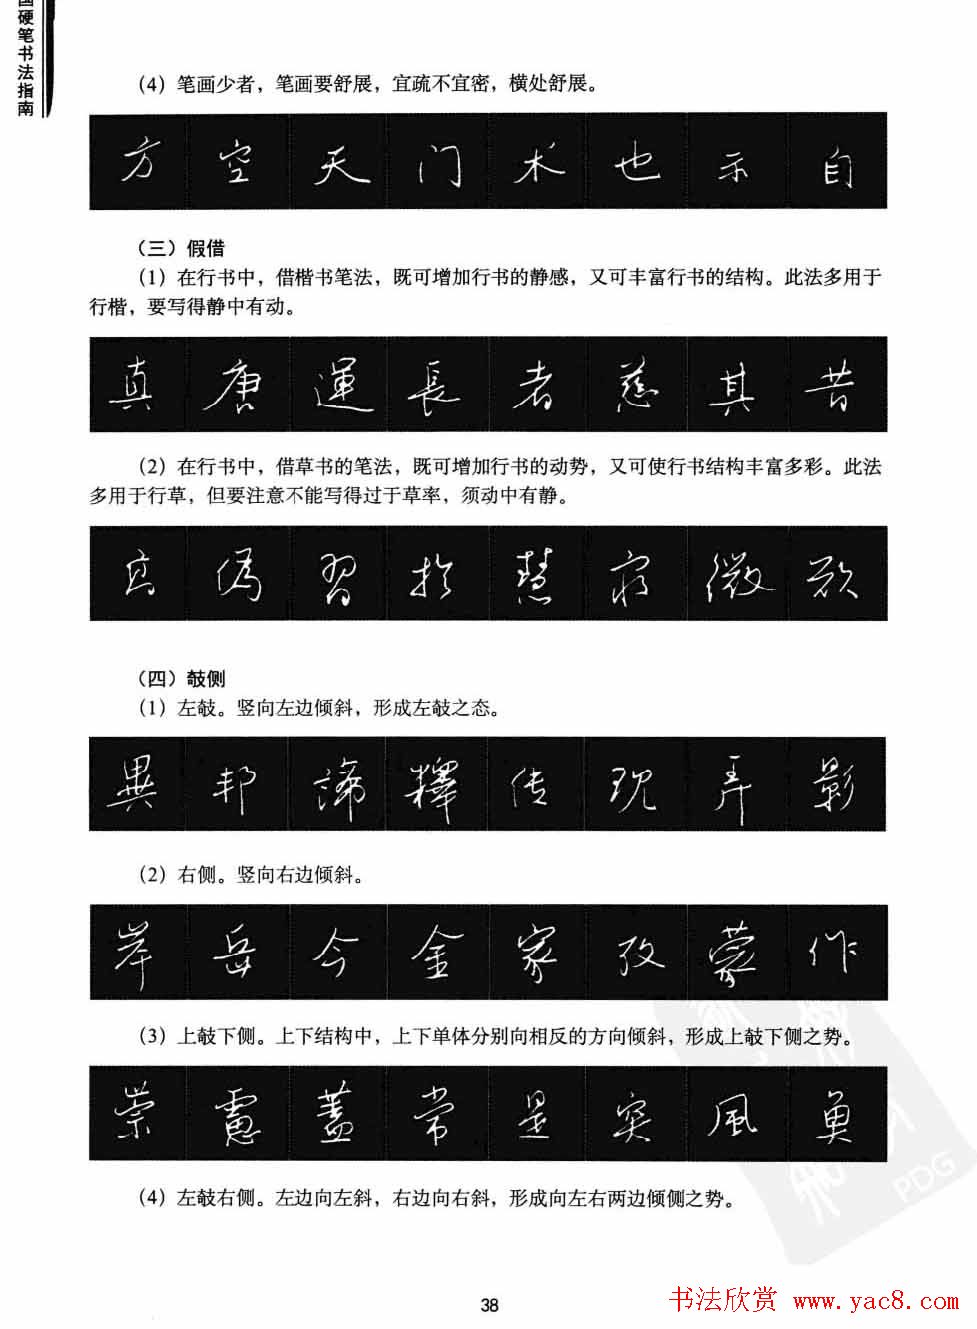 国硬笔书法指南
（4）笔画少者，笔画要舒展，宜疏不宜密，横处舒展。
方 空 天 门 术 也 示 自
（三）假借
（1）在行书中，借楷书笔法，既可增加行书的静感，又可丰富行书的结构。此法多用于
行楷，要写得静中有动。
真 唐 運 長 者 慈 其 昔
（2）在行书中，借草书的笔法，既可增加行书的动势，又可使行书结构丰富多彩。此法
多用于行草，但要注意不能写得过于草率，须动中有静。
偽 習 於 慧 微 欲
（四）攲侧
（1）左攲。竖向左边倾斜，形成左攲之态。
異 邦 諦 釋 传 现 弄 影
（2）右侧。竖向右边倾斜。
岸 岳 今 金 家 孜 蒙 作
（3）上攲下侧。上下结构中，上下单体分别向相反的方向倾斜，形成上攲下侧之势。
崇 慮 蓋 常 是 突 風 負
（4）左攲右侧。左边向左斜，右边向右斜，形成向左右两边倾侧之势。
PDG
38
书法欣赏 www.yac8.com